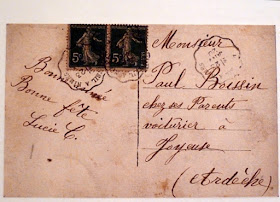 Bonne année
Bonne fête
Lucie C.
Monsieur
Paul Boissin
chez ses Parents
voiturier à
Joyeuse
(Ardèche)
5c
5c